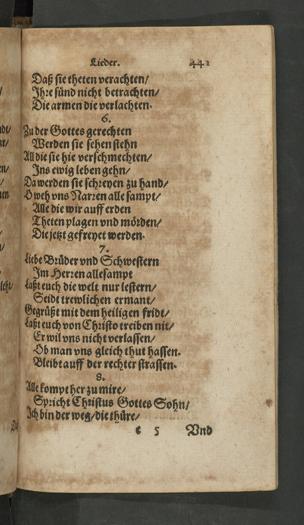 Lieder. 441
Daß sie theten verachten/
Ihre sünd nicht betrachten/
Die armen die verlachten.
6.
Zu der Gottes gerechten
Werden sie sehen stehn
All die sie hie verschmechten/
Ins ewig leben gehn/
Da werden sie schreyen zu hand/
O weh vns Narren alle sampt/
Alle die wir auff erden
Theten plagen vnd mörden/
Die jetzt gefreyet werden.
7.
Liebe Brüder vnd Schwestern
Im Herren alle sampt
Laßt euch die welt nur lestern/
Seidt trewlichen ermant/
Gegrüßt mit dem heiligen fridt/
Laßt euch von Christo treiben nit/
Er wil vns nicht verlassen/
Ob man vns gleich thut hassen.
Bleibt auff der rechter strassen.
8.
Alle kompt her zu mire/
Spricht Christus Gottes Sohn/
Ich bin der weg/die thüre/
e 5 Vnd